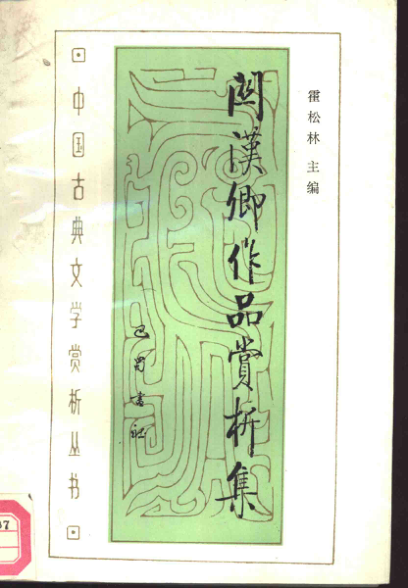 霍松林 主编
関漢卿作品賞析集
巴蜀書社
中国古典文学赏析丛书